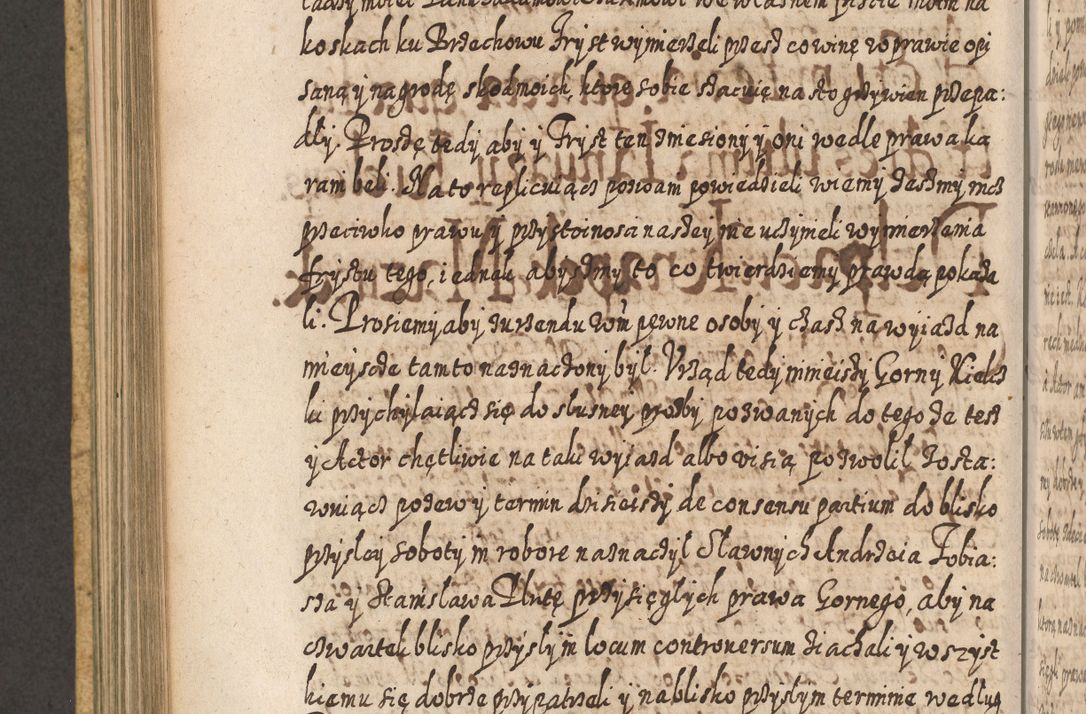 koskach ku Brzechowu Fryst wymierzeli przez co winę w prawie opi
saną y nagrodę skod moich, ktore sobie szacuię na sto grzywien przepa:
dły. Proszę tedy aby y Fryst ten zniesiony y oni wedle prawa ka
rani beli. Na to replicuiącz pozwani powiedzieli wiemy zeszmy nicz
przeciwko prawu y przystoinosci naszey nie uczynieli wymierzenia
frysztu tego, iednak abyszmy to co twierdziemy prawdą pokaza
li. Prosiemy aby zurzendu Wm pewne osoby y czasz na wyiazd na
mieyscze tamto naznaczony był. Urząd tedy ninieiszy Gorny Kielcz
ki przychylaiącz się do słuszney prozby pozwanych do tego ze tesz
y Actor chętliwie na taki wyiazd albo wisią pozwolił Zosta:
wuiącz pozew y termin dzisieiszy de consensu partium do blisko
przyszłey soboty in robore naznaczył Sławnych Andrzeia Tobia:
sza y Stanisława Plutę przysięglych prawa Gornego, aby na
czwartek blisko przyszły in locum controversum ziachali y wszyst
kiemu się dobrze przypatrzeli y na blisko przyszłym terminie według